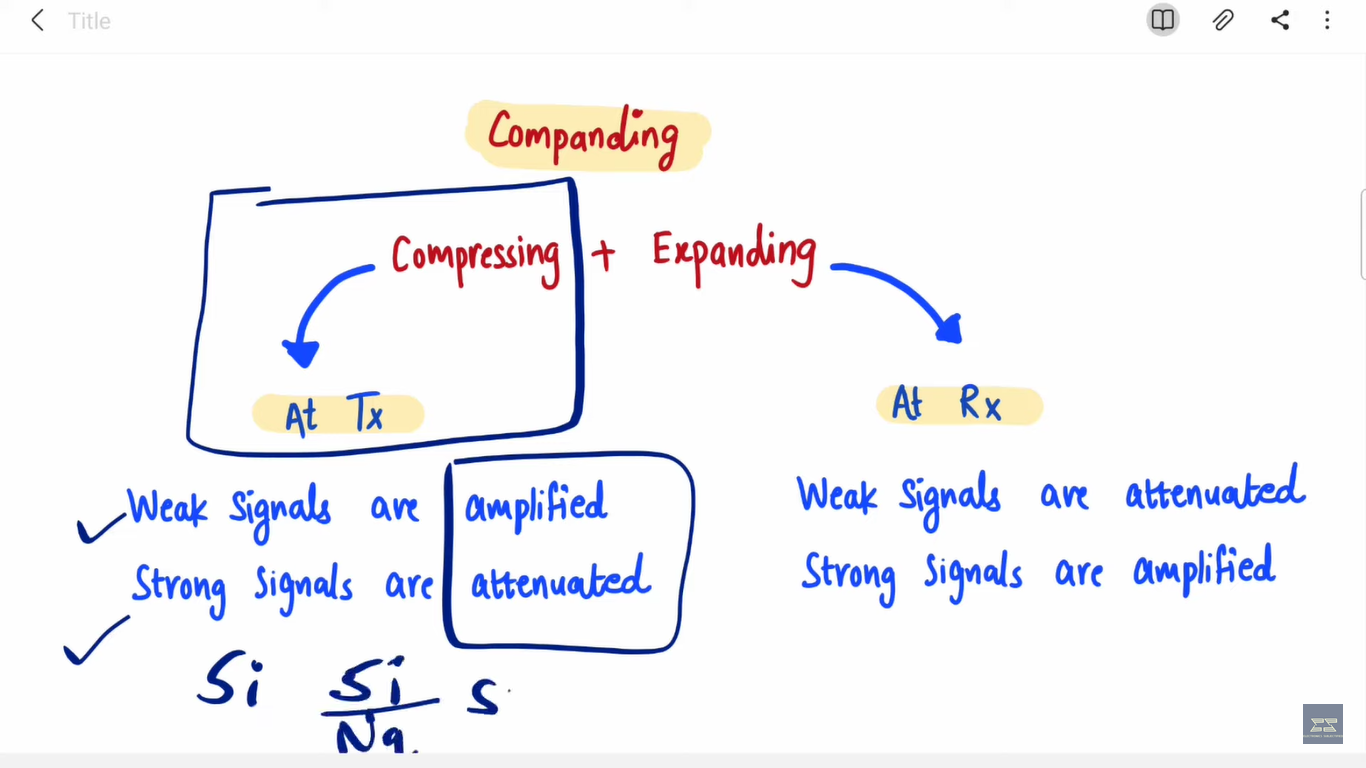 Title
Companding
Compressing + Expanding
At Tx
At Rx
Weak Signals are amplified
Strong Signals are attenuated
Weak Signals are attenuated
Strong Signals are amplified
Si Si/Nq S